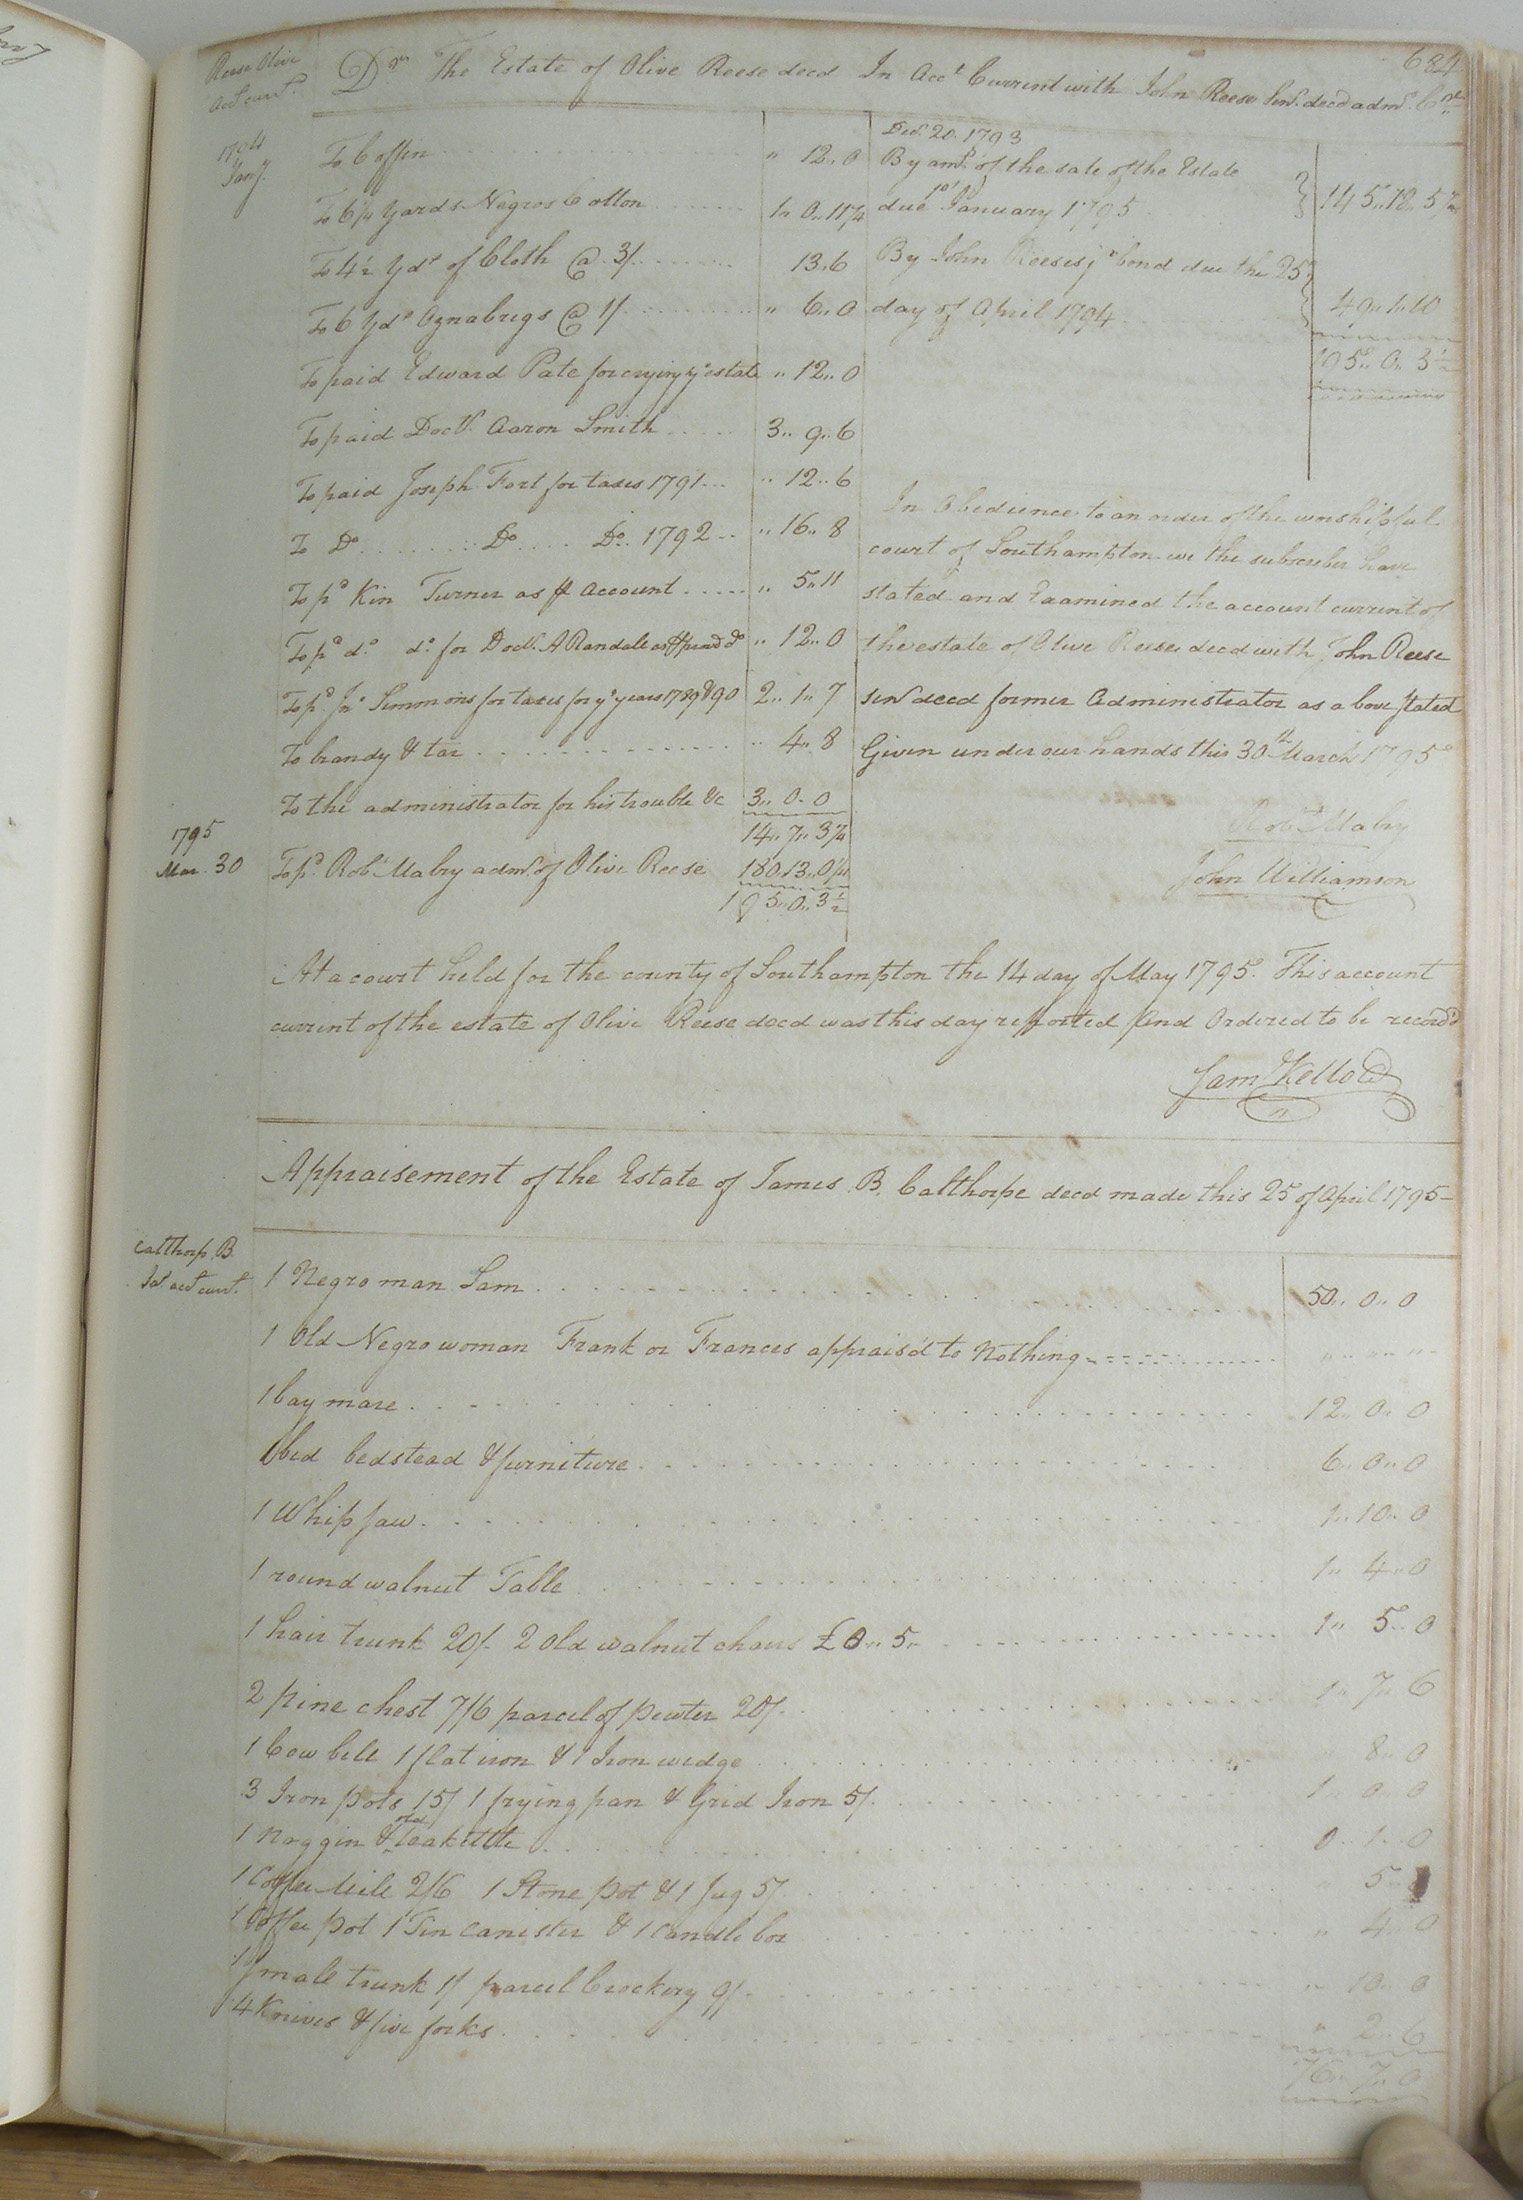 684
Reese Olive
acct currt.
Dr The Estate of Olive Reese decd In Acct Current with John Reese Senr. decd admr. Cr
1794
Jany.
To Coffin " 12.. 0
To 6¼ Yards Negros Cotton 1.. 0.. 11¼
To 4½ Yds of Cloth @ 3/. 13..6
To 6 Yds Oznabrigs @ 1/ " 6.. 0
To paid Edward Pate for crying ye estate " 12.. 0
To paid Doctr. Aaron Smith 3.. 9..6
To paid Joseph Fort for taxes 1791 " 12..6
To Do Do Do. 1792 " 16.. 8
To pd Kin Turner as pr account " 5.. 11
To pd do. do. for Doctr. A Randall as pr provd do " 12.. 0
To pd. Jno Simmons for taxes for ye years 1789 & 90 2.. 1.. 7
To brandy & tar " 4.. 8
To the administrator for his trouble &c 3.. 0.. 0
14.. 7.. 3¼
1795
Mar. 30
To pd. Robt Mabry admr. of Olive Reese 180..13..0¼
195..0..3½
Decr. 20. 1793
By amt. of the sale of the Estate
due 1st January 1795 145..18..5½
By John Reeses jr bond due the 25
day of April 1794 49.. 1..10
195.. 0.. 3½
In Obedience to an order of the worshipful
court of Southampton we the subscriber have
stated and Examined the account current of
the estate of Olive Reese decd with John Reese
senr decd former Administrator as above stated
Given under our hands this 30th March 1795
Robt Mabry
John Williamson
At a court held for the county of Southampton the 14 day of May 1795. This account
current of the estate of Olive Reese decd was this day reported And Ordered to be recordd
Saml Kello CC
Appraisement of the Estate of James B. Calthorpe decd made this 25 of April 1795
Calthorp. B.
Jas. acct currt.
1 Negro man Sam 50.. 0.. 0
1 Old Negro woman Frank or Frances apprais'd to Nothing " .. " .. "
1 bay mare 12.. 0.. 0
1 bed bedstead & furniture 6.. 0.. 0
1 Whip saw 1.. 10.. 0
1 round walnut Table 1.. 4.. 0
1 hair trunk 20/. 2 Old walnut chairs £0.. 5.. 1.. 5.. 0
2 pine chest 7/6 parcel of pewter 20/. 1.. 7.. 6
1 Cow bell 1 flat iron & 1 Iron wedge 8.. 0
3 Iron pots 15/ 1 frying pan & Grid Iron 5/. 1.. 0.. 0
1 Noggin & old teakettle 0.. 1.. 0
1 Coffee Mill 2/6 1 Stone pot & 1 Jug 5/ 5..
1 Coffee pot 1 Tin canister & 1 candle box " 4.. 0
1 small trunk 1/ parcel Crockery 9/. " 10.. 0
4 Knives & five forks " 2.. 6
76.. 7.. 0